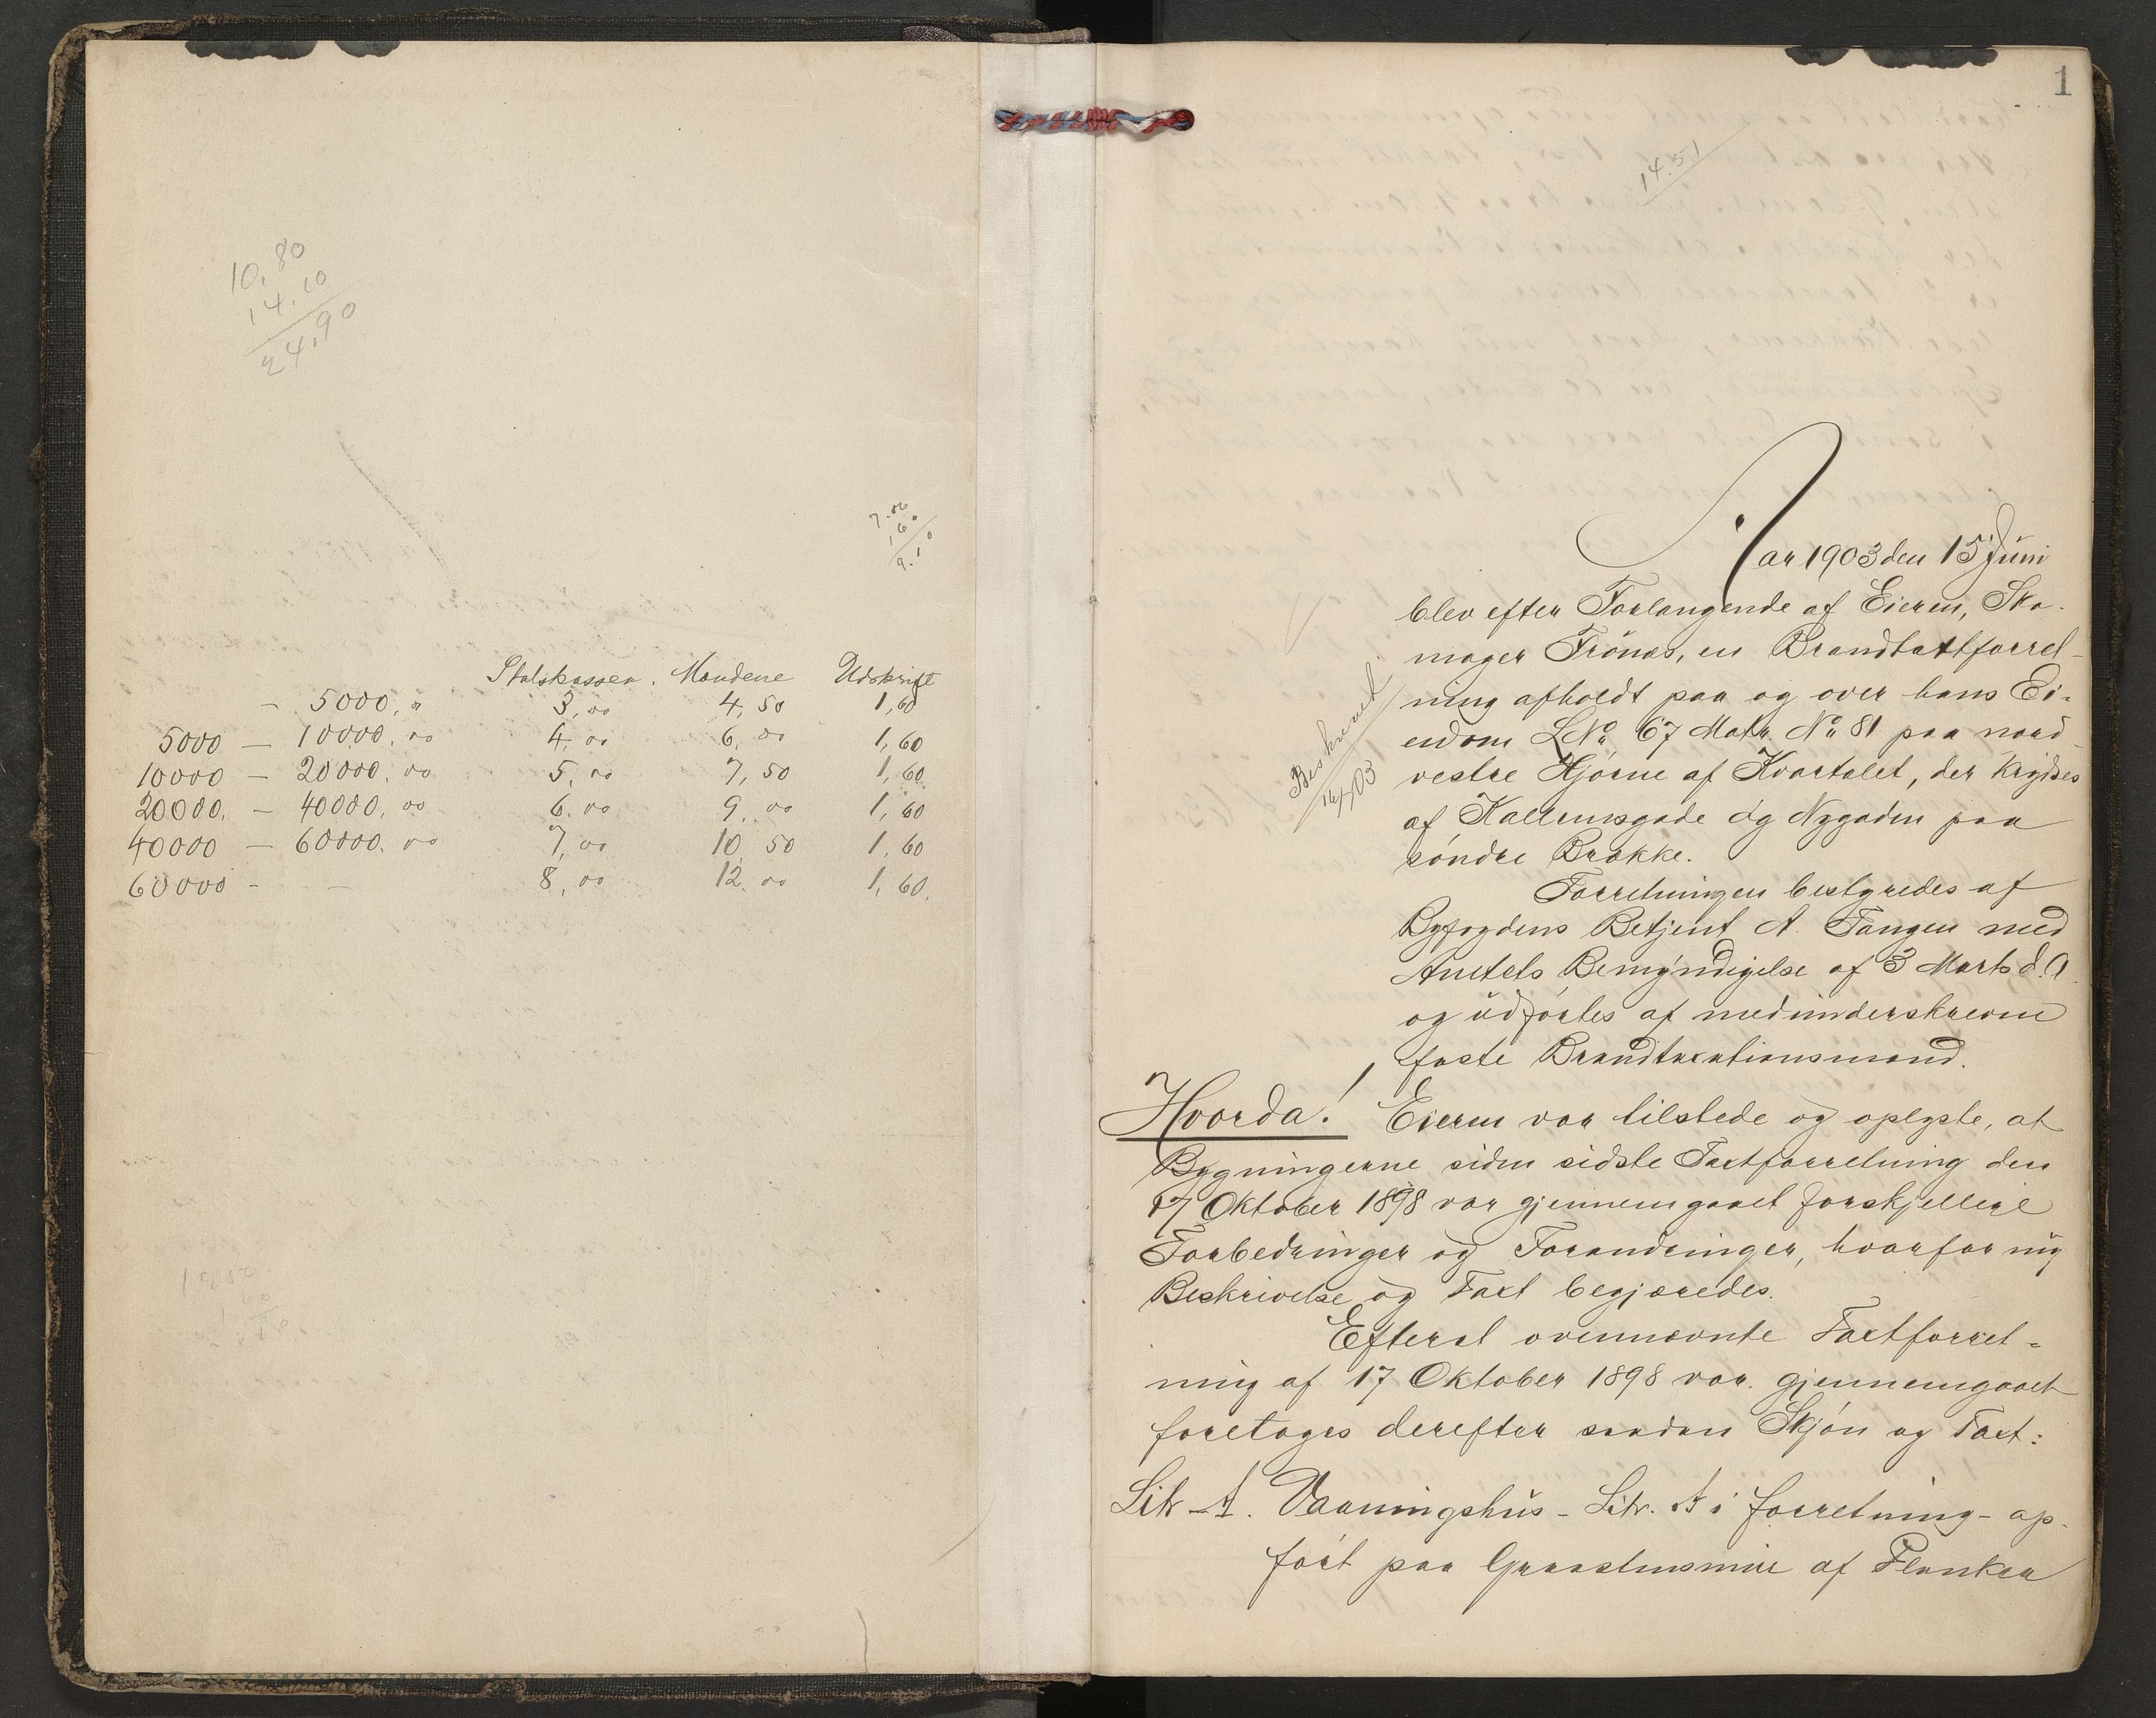 10,80
14,10
24,90
7.50
1.60
9.10
Statskassen. Mændene Udskrift
- 5000,00 3,00 4,50 1,60
5000 - 10000,00 4,00 6,00 1,60
10000 - 20000,00 5,00 7,50 1,60
20000, - 40000,00 6,00 9,00 1,60
40000 - 60000,00 7,00 10,50 1,60
60000 - - 8,00 12,00 1,60.
1
14.51
Aar 1903 den 15 Juni
blev efter Forlangende af Eieren, Sko-
mager Trönæs, en Brandtaxtforret-
ning afholdt paa og over hans Ei-
endom LNº 67 Matr. Nº 81 paa nord-
vestre Hjörne af Kvartalet, der krydses
af Nygaden paa
söndre Brække.
Beskrevet
16/7 03
Forretningen bestyredes af
Byfogdens Betjent A. Tangen med
Amtets Bemyndigelse af 3 Marts d.A.
og udförtes af medunderskrevne
faste Brandtaxationsmænd.
Hvorda! Eieren var tilstede og oplyste, at
Bygningerne siden sidste Taxtforretning den
17 Oktober 1898 var gjennemgaaet forskjellige
Forbedringer og Forandringer, hvorfor ny
Beskrivelse og Taxt begjæredes.
Efterat ovennævnte Taxtforret-
ning af 17 Oktober 1898 var gjennemgaaet
foretoges derefter saadan Skjön og Taxt:
Litr A. Vaaningshus - Litr. A i forretning - op-
fört paa Graastensmur af Planker